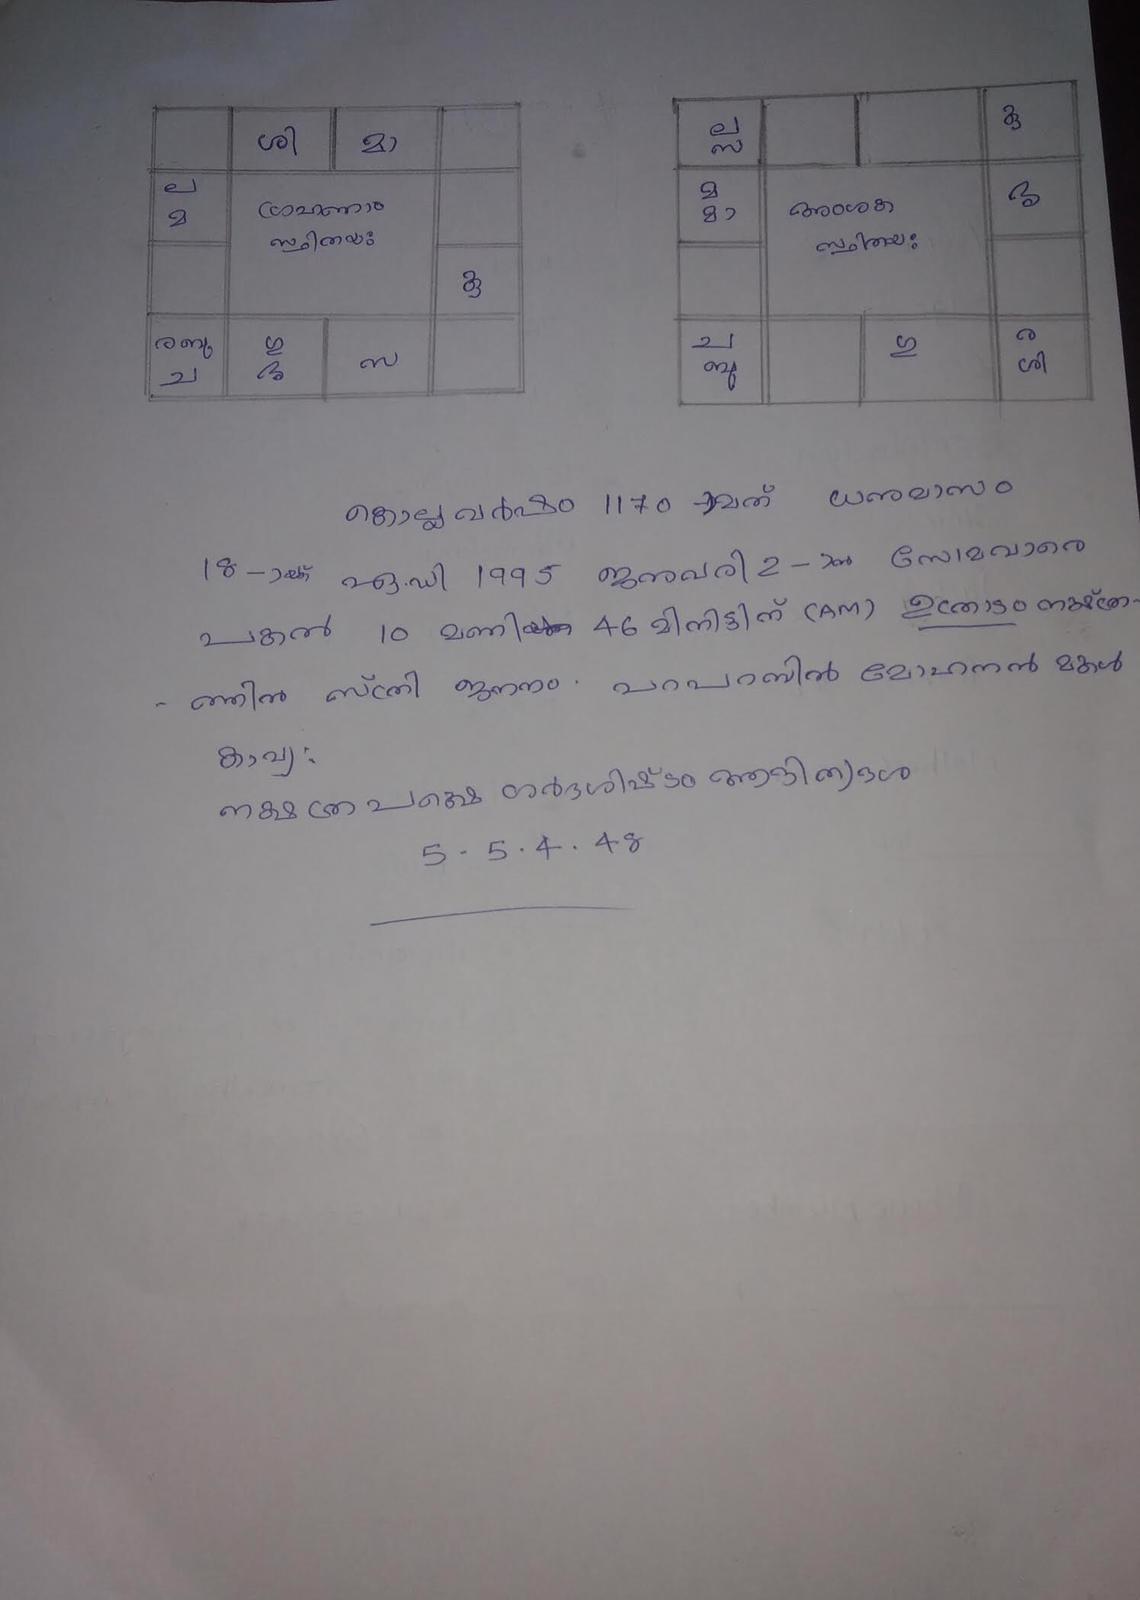 ശി മാ
ല
മ
ഗ്രഹണാം
സ്ഥിതയഃ
കു
രബു
ച
ഗു
സ
ല
സ
കു
മ
മാ
അംശക
സ്ഥിതയഃ
ച
ബു
ഗു
ര
ശി
കൊല്ലവർഷം 1170 -ാമത് ധനുമാസം
18 -ാംക്ക് ഏ.ഡി 1995 ജനുവരി 2 -ാം സോമവാരെ
പകൽ 10 മണി 46 മിനിട്ടിന് (AM) ഉത്രാടം നക്ഷത്ര-
- ത്തിൽ സ്ത്രീ ജനനം. പറപറമ്പിൽ മോഹനൻ മകൾ
കാവ്യ:
നക്ഷത്ര പക്ഷെ ഗർഭശിഷ്ടം ആദിത്യദശ
5 . 5 . 4 . 48